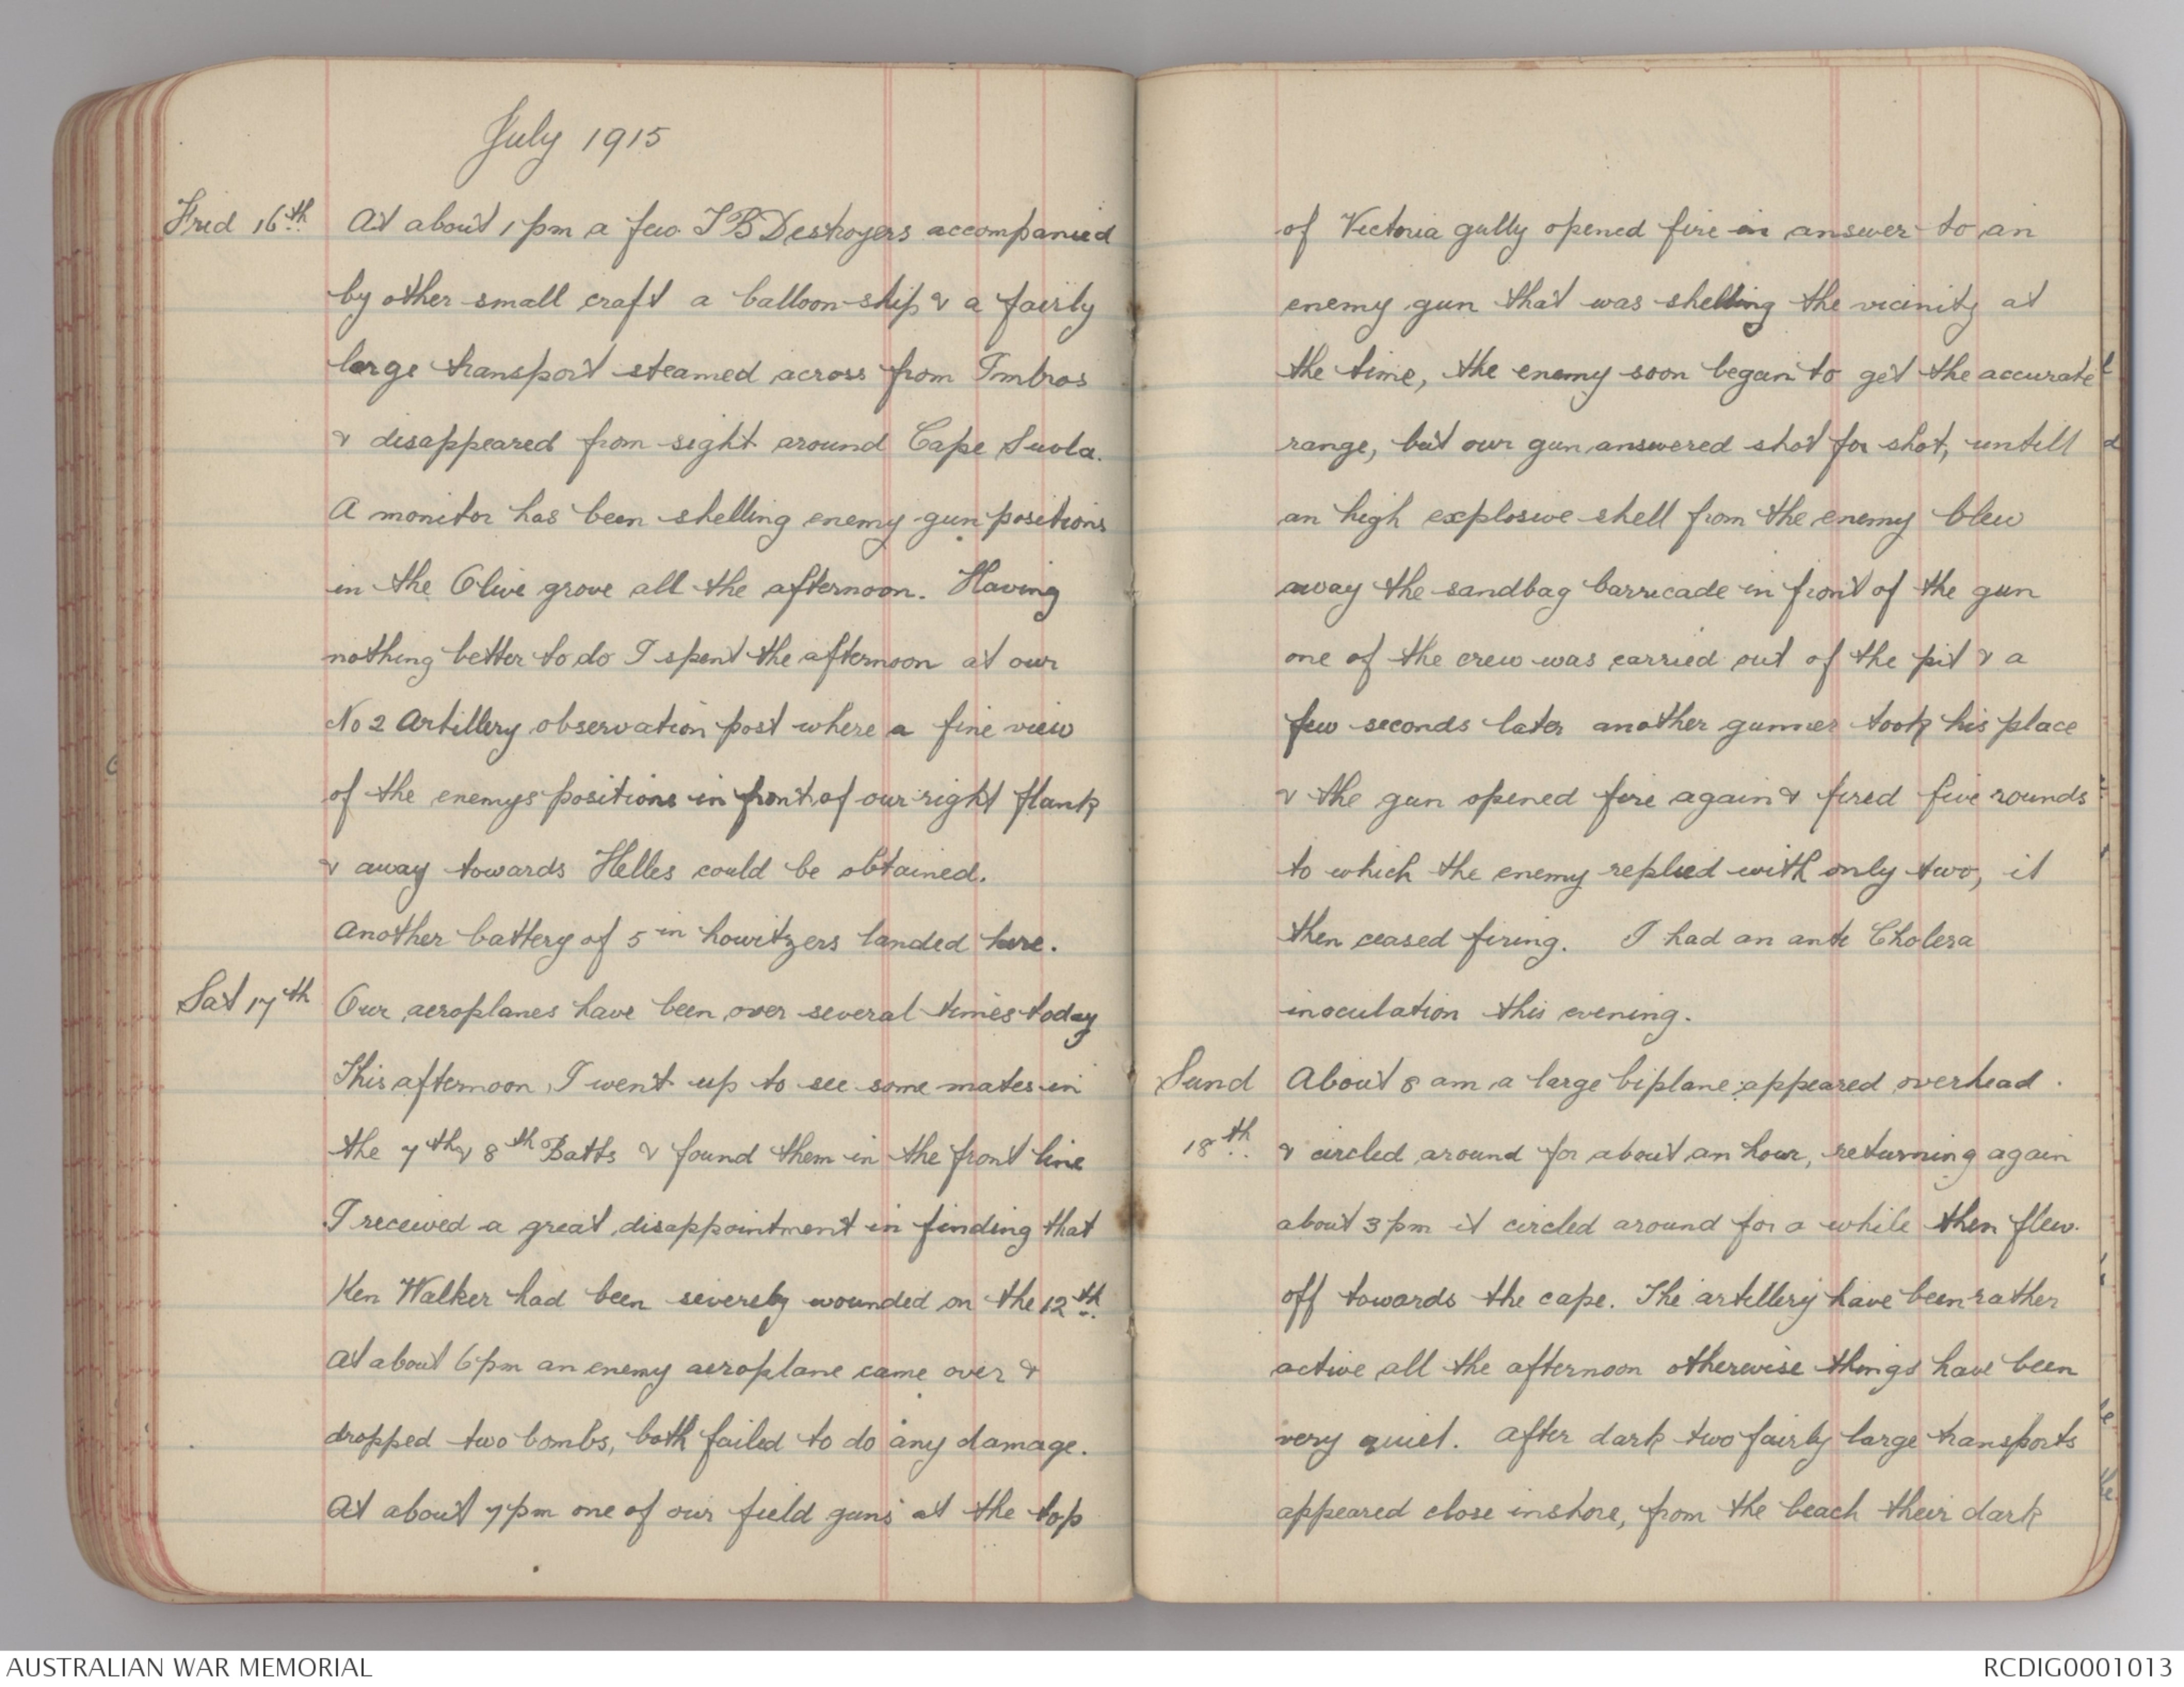 July 1915
Fried 16th. At about 1 pm a few T B Destroyers accompanied
by other small craft a balloon ship & a fairly
large transport steamed across from Imbros
& disappeared from sight around Cape Suvla.
A monitor has been shelling enemy gun positions
in the Olive grove all the afternoon. Having
nothing better to do I spent the afternoon at our
No 2 Artillery observation post where a fine view
of the enemys positions in front of our right flank
& away towards Helles could be obtained.
Another battery of 5 in howitzers landed here.
Sat 17th Our aeroplanes have been over several times today
This afternoon I went up to see some mates in
the 7th & 8th Batts & found them in the front line
I received a great disappointment in finding that
Ken Walker had been severely wounded on the 12th.
At about 6 pm an enemy aeroplane came over &
dropped two bombs, both failed to do any damage.
At about 7 pm one of our field guns at the top
of Victoria gully opened fire in answer to an
enemy gun that was shelling the vicinity at
the time, the enemy soon began to get the accurate
range, but our gun answered shot for shot, untill
an high explosive shell from the enemy blew
away the sandbag barricade in front of the gun
one of the crew was carried out of the pit & a
few seconds later another gunner took his place
& the gun opened fire again & fired five rounds
to which the enemy replied with only two, it
then ceased firing. I had an ante Cholera
inoculation this evening.
Sund About 8 am a large biplane appeared overhead.
18th. & circled around for about an hour, returning again
about 3 pm it circled around for a while then flew
off towards the cape. The artillery have been rather
active all the afternoon otherwise things have been
very quiet. After dark two fairly large transports
appeared close inshore, from the beach their dark
AUSTRALIAN WAR MEMORIAL
RCDIG0001013